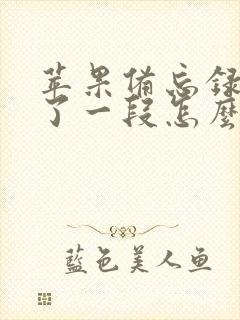 苹果备忘录
了一段怎么
藍色美人鱼